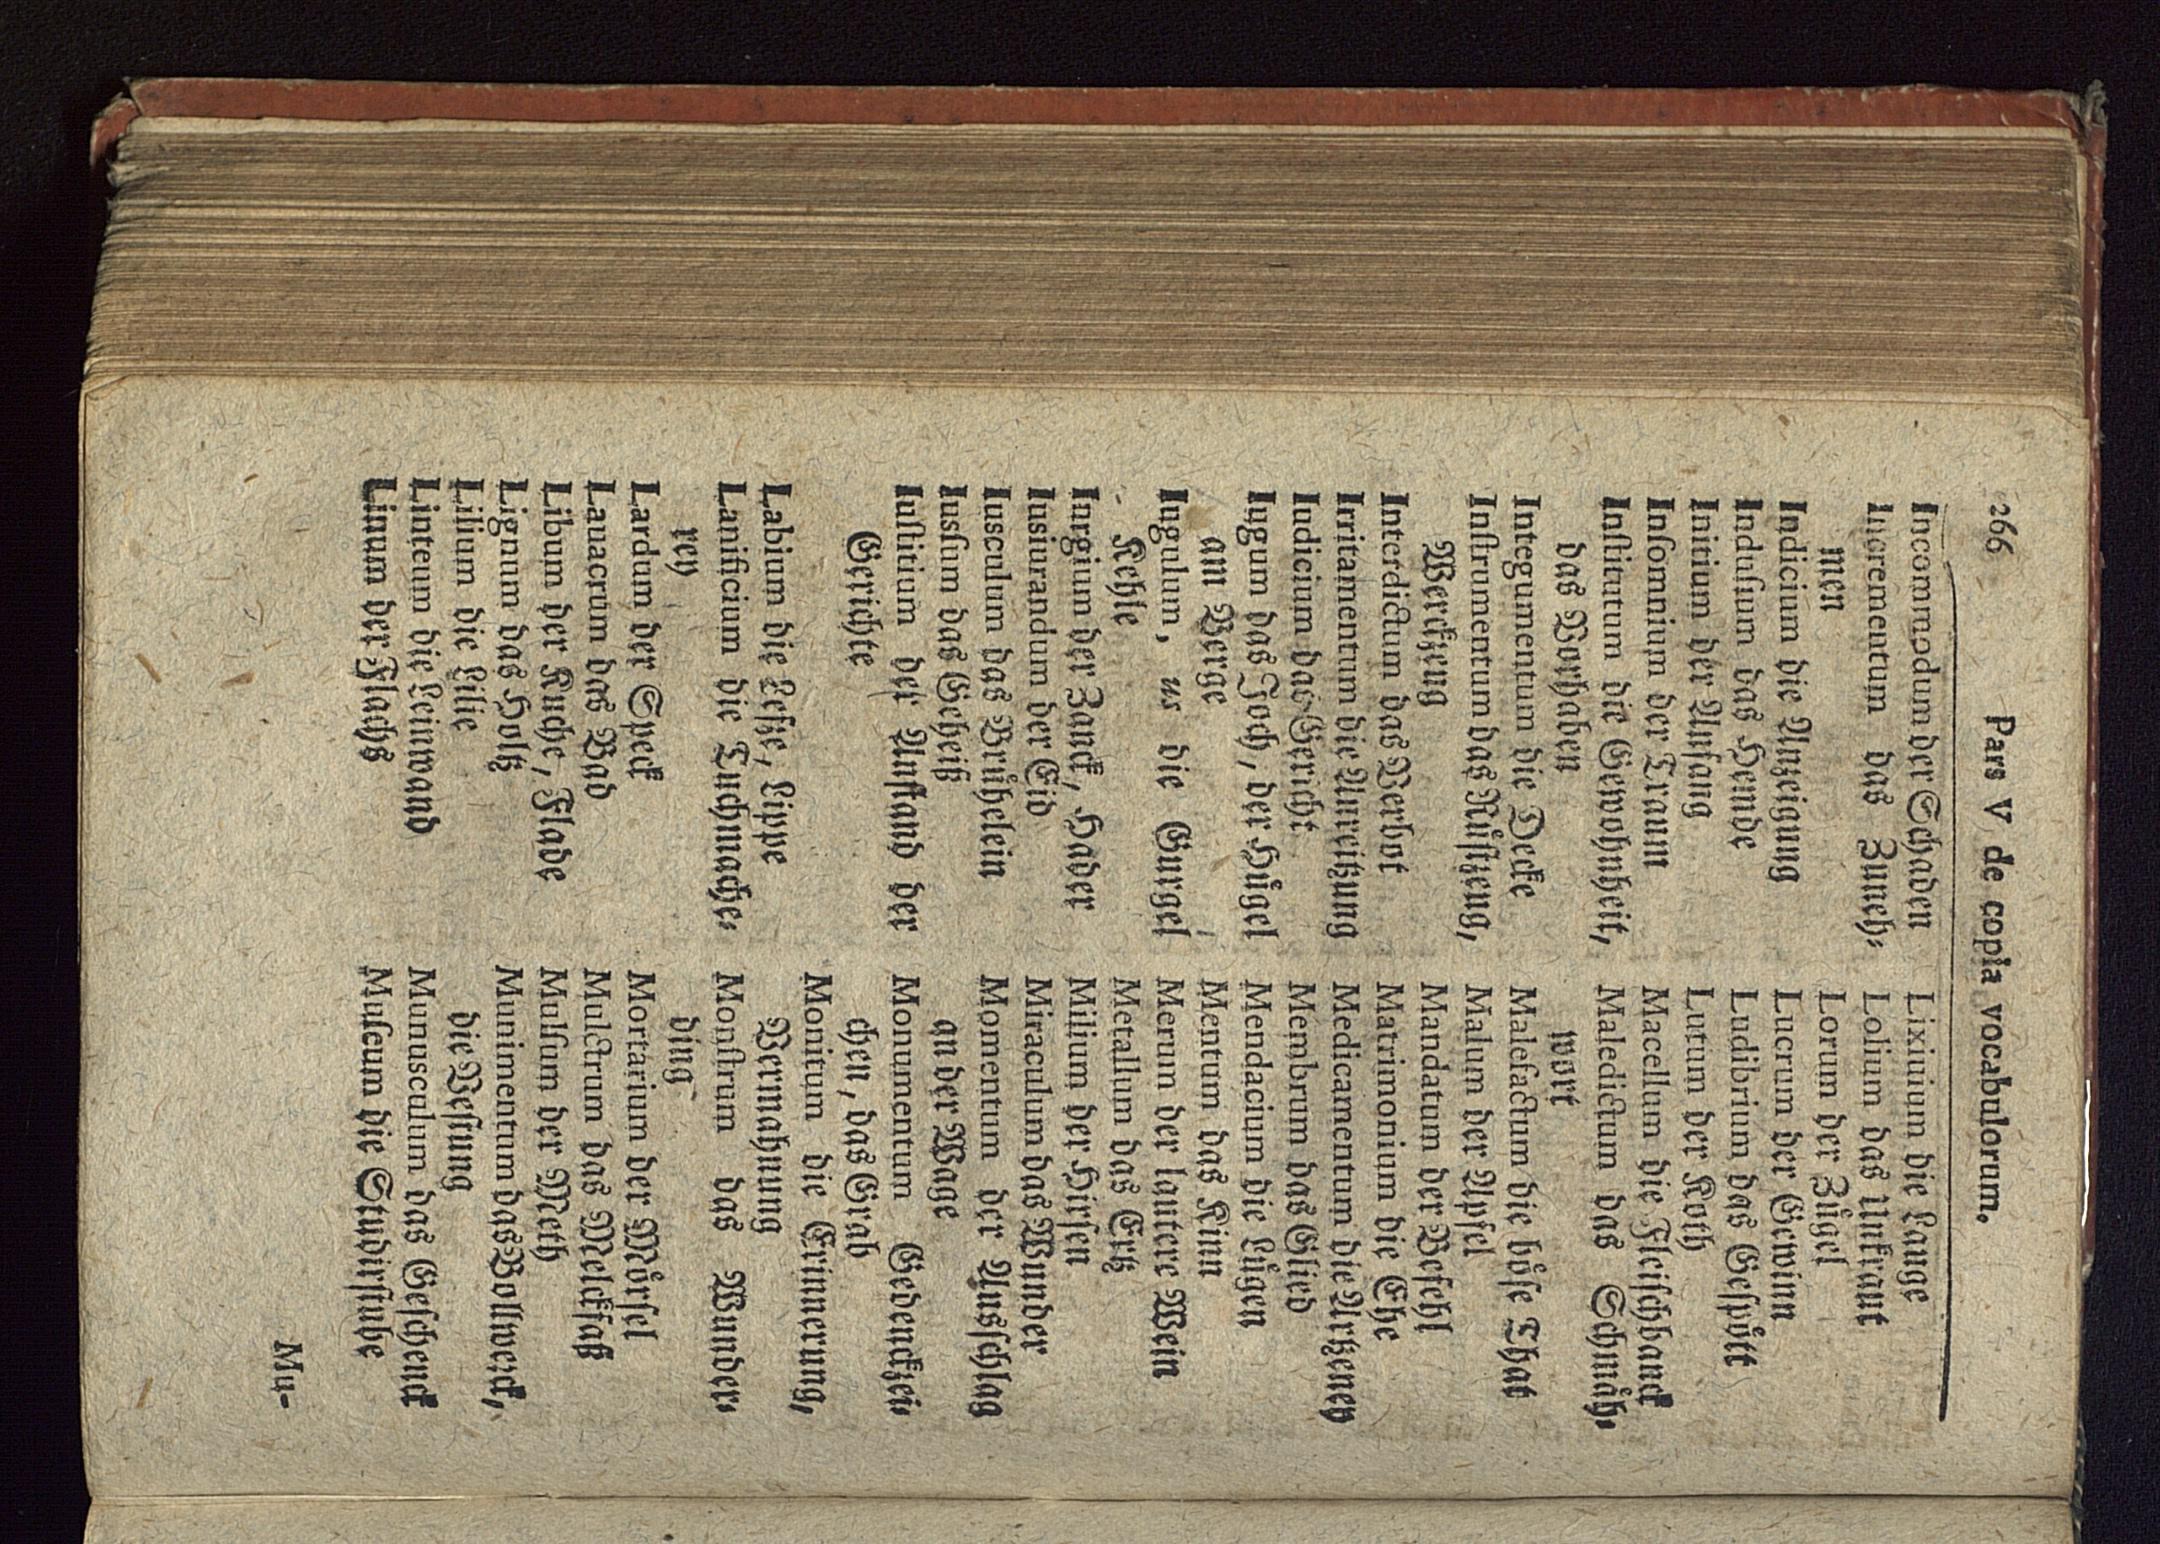 266 Pars V de copia vocabulorum.
Incommodum der Schaden
Incrementum das Zuneh-
men
Indicium die Anzeigung
Indusium das Hemde
Initium der Anfang
Insomnium der Traum
Institutum die Gewohnheit,
das Vorhaben
Integumentum die Decke
Instrumentum das Rüstzeug,
Werckzeug
Interdictum das Verbot
Irritamentum die Anreitzung
Iudicium das Gericht
Iugum das Joch, der Hügel
am Berge
Iugulum, us die Gurgel
Kehle
Iurgium der Zanck, Hader
Iusiurandum der Eid
Iusculum das Brühelein
Iussum das Geheiß
Iustitium der Anstand der
Gerichte
Labium die Lefze, Lippe
Lanificium die Tuchmache-
rey
Lardum der Speck
Lauacrum das Bad
Libum der Kuche, Flade
Lignum das Holtz
Lilium die Lilie
Linteum die Leinwand
Linum der Flachs
Lixiuium die Lauge
Lolium das Unkraut
Lorum der Zügel
Lucrum der Gewinn
Ludibrium das Gespött
Lutum der Koth
Macellum die Fleischbanck
Maledictum das Schmäh-
wort
Malefactum die böse That
Malum der Apfel
Mandatum der Befehl
Matrimonium die Ehe
Medicamentum die Artzeney
Membrum das Glied
Mendacium die Lügen
Mentum das Kinn
Merum der lautere Wein
Metallum das Ertz
Milium der Hirsen
Miraculum das Wunder
Momentum der Ausschlag
an der Wage
Monumentum Gedenckzei-
chen, das Grab
Monitum die Erinnerung,
Vermahnung
Monstrum das Wunder-
ding
Mortarium der Mörsel
Mulctrum das Melckfaß
Mulsum der Meth
Munimentum das Bollwerck,
die Vestung
Munusculum das Geschenck
Museum die Studirstube
Mu-